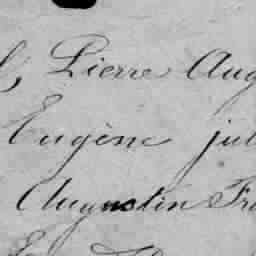 Pierre Aug
Eugène jul
Augustin Fra